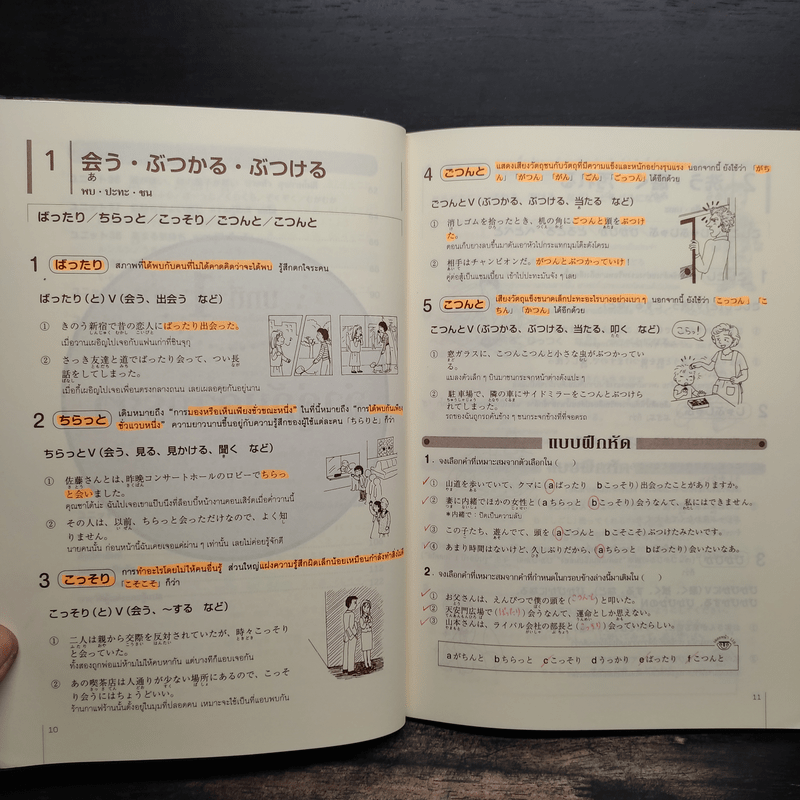 1 会う・ぶつかる・ぶつける
あ
พบ・ปะทะ・ชน
ばったり／ちらっと／こっそり／ごつんと／こつんと
1 ばったり สภาพที่ได้พบกับคนที่ไม่ได้คาดคิดว่าจะได้พบ รู้สึกตกใจระคน
ばったり(と)V(会う、出会う など)
① きのう新宿で昔の恋人にばったり出会った。
เมื่อวานเผอิญไปเจอกับแฟนเก่าที่ชินจุกุ
② さっき友達と道でばったり会って、つい長
話をしてしまった。
เมื่อกี้เผอิญไปเจอเพื่อนตรงกลางถนน เลยเผลอคุยกันอยู่นาน
2 ちらっと เดิมหมายถึง "การมองหรือเห็นเพียงชั่วขณะหนึ่ง" ในที่นี้หมายถึง "การได้พบกันเพียง
ชั่วแวบหนึ่ง" ความยาวนานขึ้นอยู่กับความรู้สึกของผู้ใช้แต่ละคน「ちらりと」ก็ว่า
ちらっとV(会う、見る、見かける、聞く など)
① 佐藤さんとは、昨晩コンサートホールのロビーでちらっ
と会いました。
คุณซาโต้น่ะ ฉันไปเจอเขาแป๊บนึงที่ล็อบบี้หน้างานคอนเสิร์ตเมื่อค่ำวานนี้
② その人は、以前、ちらっと会っただけなので、よく知
りません。
นายคนนั้น ก่อนหน้านี้ฉันเคยเจอแค่ผ่าน ๆ เท่านั้น เลยไม่ค่อยรู้จักดี
3 こっそり การทำอะไรโดยไม่ให้คนอื่นรู้ ส่วนใหญ่แฝงความรู้สึกผิดเล็กน้อยเหมือนกำลังทำสิ่งไม่ดี
「こそこそ」ก็ว่า
こっそり(と)V(会う、～する など)
① 二人は親から交際を反対されていたが、時々こっそり
と会っていた。
ทั้งสองถูกพ่อแม่ห้ามไม่ให้คบหากัน แต่บางทีก็แอบเจอกัน
② あの喫茶店は人通りが少ない場所にあるので、こっそ
り会うにはちょうどいい。
ร้านกาแฟร้านนั้นตั้งอยู่ในมุมที่ปลอดคน เหมาะจะใช้เป็นที่แอบพบกัน
10
4 ごつんと แสดงเสียงวัตถุชนกับวัตถุที่มีความแข็งและหนักอย่างรุนแรง นอกจากนี้ ยังใช้ว่า「がち
ん」「がつん」「がん」「ごん」「ごっつん」ได้อีกด้วย
ごつんとV(ぶつかる、ぶつける、当たる など)
① 消しゴムを拾ったとき、机の角にごつんと頭をぶつけ
た。
ตอนเก็บยางลบขึ้นมาดันเอาหัวไปกระแทกมุมโต๊ะดังโครม
② 相手はチャンピオンだ。がつんとぶつかっていけ!
คู่ต่อสู้เป็นแชมเปี้ยน เข้าไปปะทะมันจัง ๆ เลย
5 こつんと เสียงวัตถุแข็งขนาดเล็กปะทะอะไรบางอย่างเบาๆ นอกจากนี้ ยังใช้ว่า「こっつん」「こ
ちん」「かつん」ได้อีกด้วย
こつんとV(ぶつかる、ぶつける、当たる、叩く など)
こらっ!
① 窓ガラスに、こつんこつんと小さな虫がぶつかってい
る。
แมลงตัวเล็ก ๆ บินมาชนกระจกหน้าต่างดังแปะ ๆ
② 駐車場で、隣の車にサイドミラーをこつんとぶつけら
れてしまった。
รถของฉันถูกรถคันข้าง ๆ ชนกระจกข้างที่ที่จอดรถ
แบบฝึกหัด
1 จงเลือกคำที่เหมาะสมจากตัวเลือกใน ( )
① 山道を歩いていて、クマに(aばったり bこっそり)出会ったことがありますか。
② 妻に内緒でほかの女性と(aちらっと bこっそり)会うなんて、私にはできません。
*内緒で : ปิดเป็นความลับ
③ この子たち、遊んでて、頭を(aごつんと bこそこそ)ぶつけたみたいです。
④ あまり時間はないけど、久しぶりだから、(aちらっと bばったり)会いたいなあ。
2 จงเลือกคำที่เหมาะสมจากคำที่กำหนดในกรอบข้างล่างนี้มาเติมใน ( )
① お父さんは、えんぴつで僕の頭を(こつんと)と叩いた。
② 天安門広場で(ばったり)会うなんて、運命としか思えない。
③ 山本さんは、ライバル会社の部長と(こっそり)会っていたらしい。
aがちんと bちらっと cこっそり dうっかり eばったり fこつんと
11